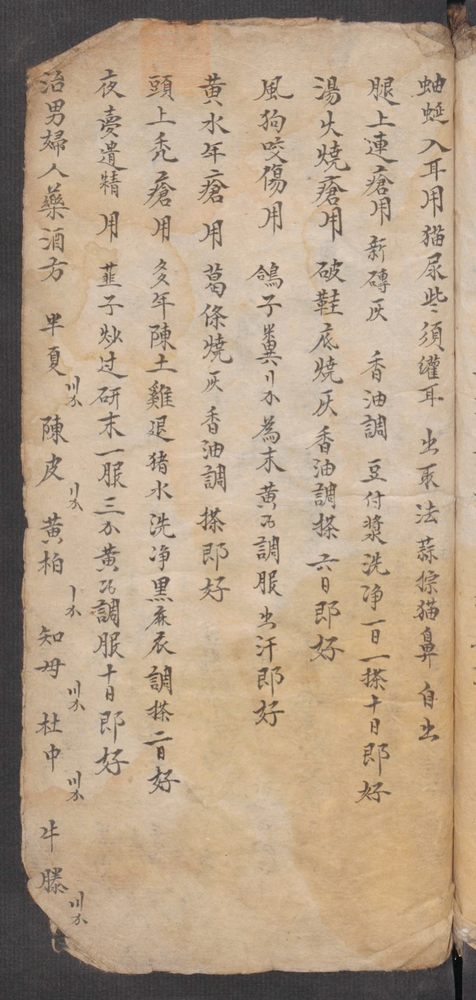 蚰蜒入耳用猫尿些須罐耳 出取法蒜掠猫鼻自出
腿上連瘡用 新磚灰 香油調 豆付漿洗净一日一搽十日即好
湯火燒瘡用 破鞋底燒灰香油調搽 六日即好
風狗咬傷用 鴿子糞〢分為末黄酒調服出汗即好
黄水年瘡用 葛條燒灰香油調搽即好
頭上禿瘡用 多年陳土雞退猪水洗净黑麻衣調搽二日好
夜夢遺精用 韮子炒过研末一服三分黄酒調服十日即好
治男婦人藥酒方 半夏〣分 陳皮〢分 黄柏〡分 知母〣分 杜中〣分 牛膝〣分